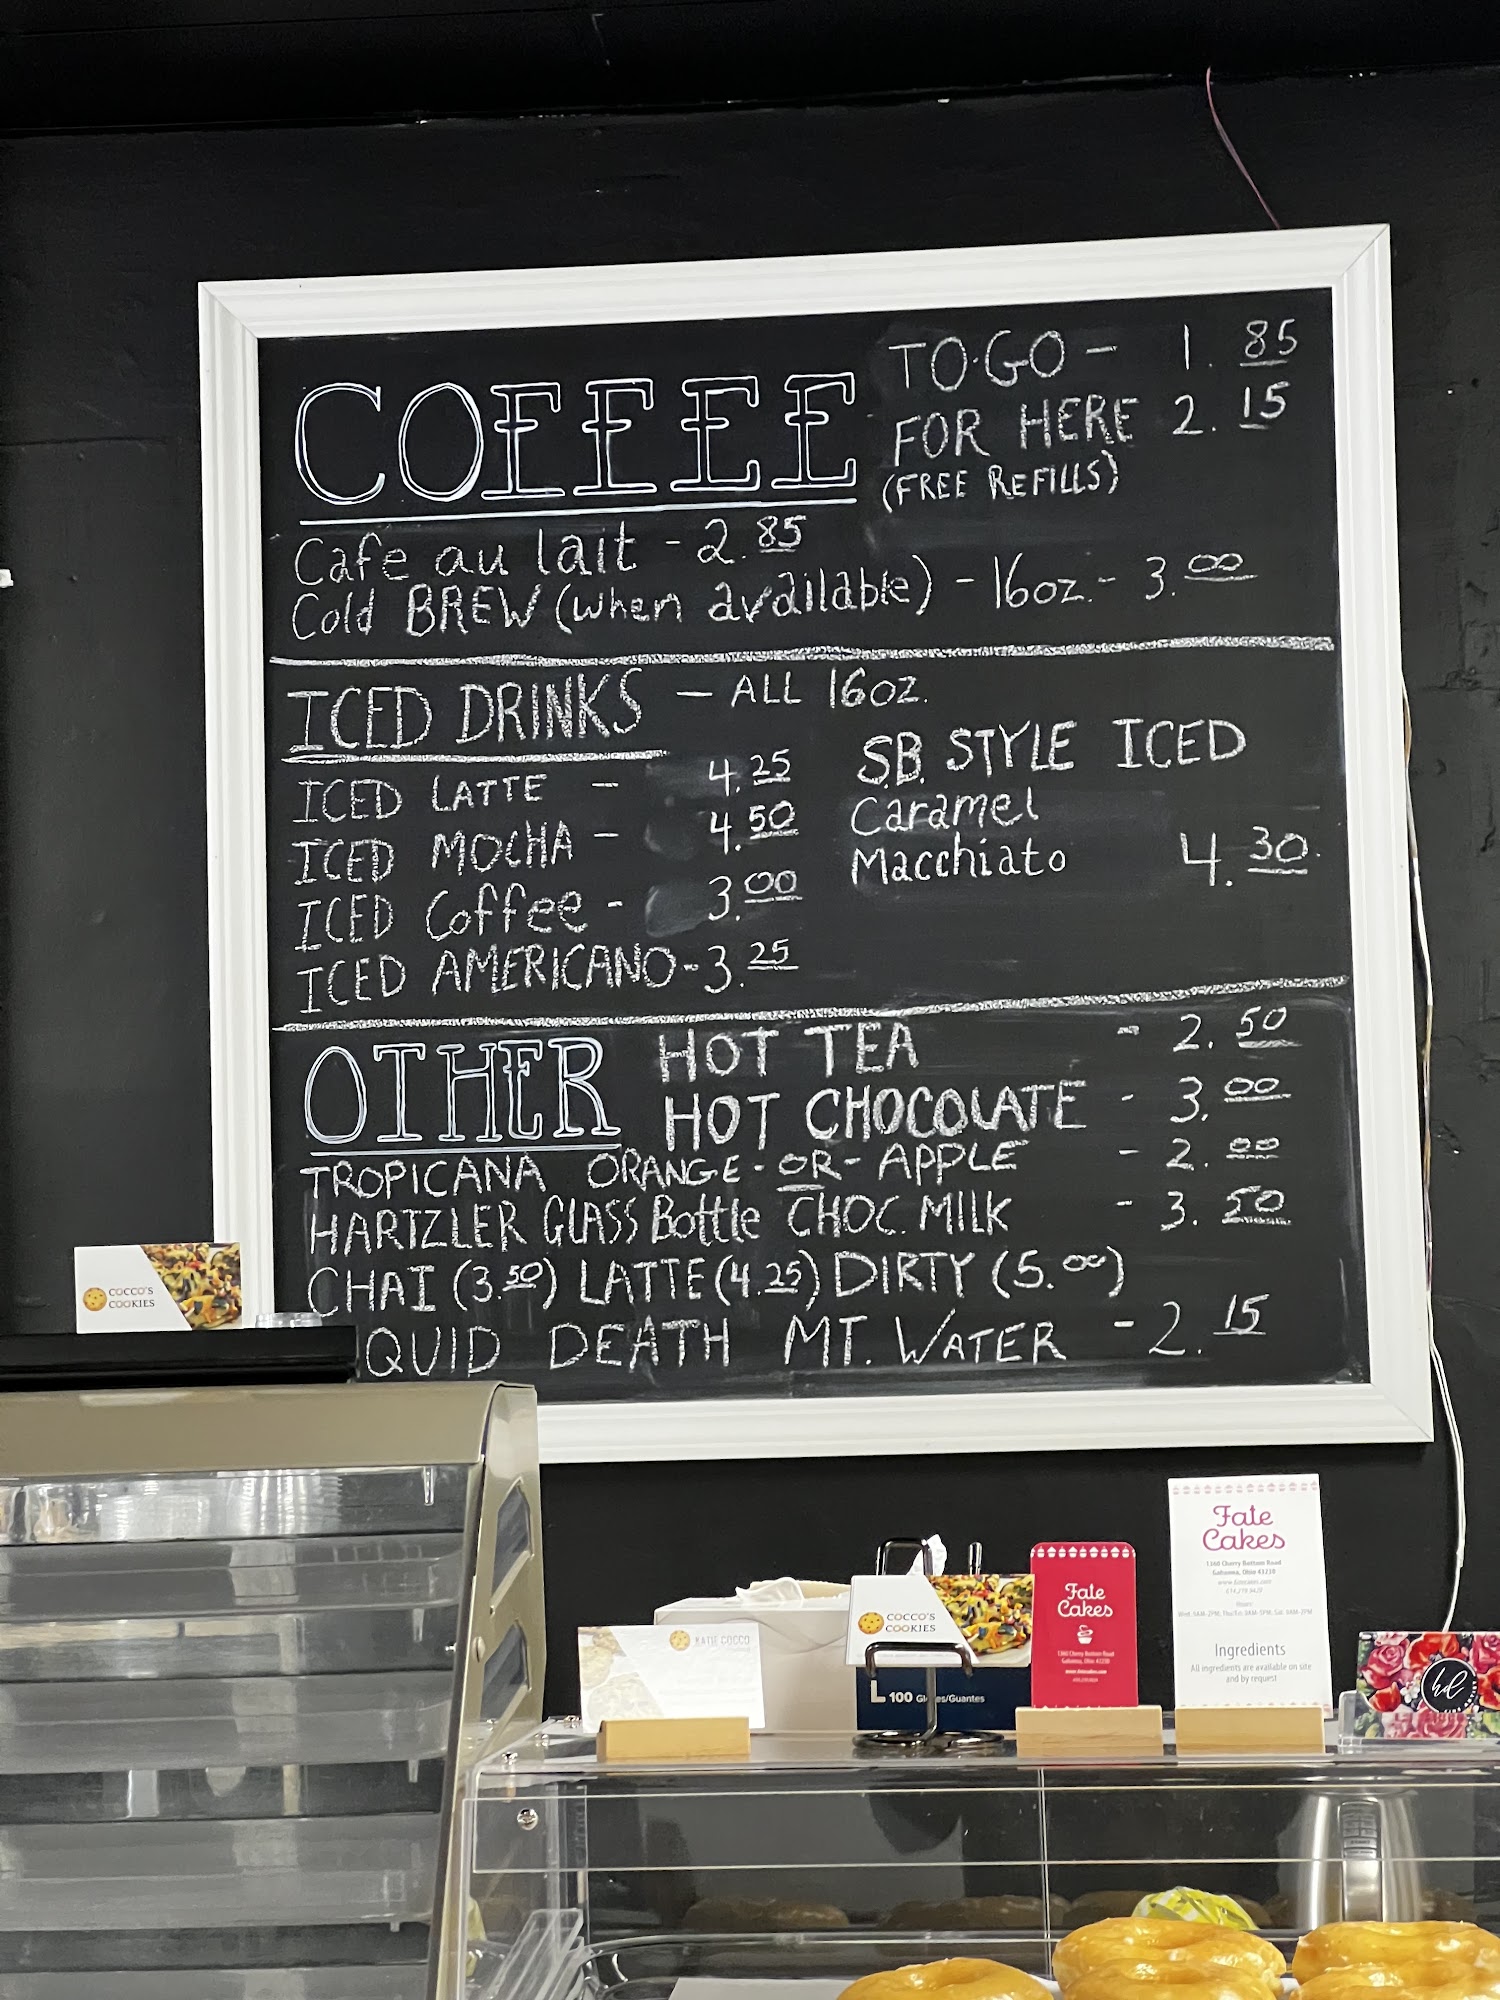 COFFEE
TO·GO - 1.85
FOR HERE 2.15
(FREE REFILLS)
Cafe au lait - 2.85
Cold BREW (when available) - 16oz. - 3.00
ICED DRINKS - ALL 16oz.
ICED LATTE - 4.25
ICED MOCHA - 4.50
ICED Coffee - 3.00
ICED AMERICANO - 3.25
S.B. STYLE ICED
Caramel
Macchiato 4.30
OTHER
HOT TEA - 2.50
HOT CHOCOLATE - 3.00
TROPICANA ORANGE - OR - APPLE - 2.00
HARTZLER GLASS Bottle CHOC. MILK - 3.50
CHAI (3.50) LATTE (4.25) DIRTY (5.00)
QUID DEATH MT. WATER - 2.15
COCCO'S
COOKIES
KATIE COCCO
COCCO'S
COOKIES
L 100 Gl es/Guantes
Fate
Cakes
1360 Cherry Bottom Road
Gahanna, Ohio 43230
Fate
Cakes
1360 Cherry Bottom Road
Gahanna, Ohio 43230
www.fatecakes.com
Hours:
Ingredients
All ingredients are available on site
and by request
hd